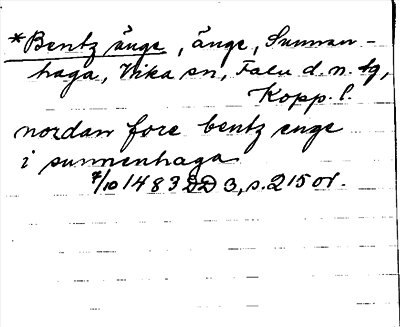 *Bentz änge, änge, Sunnan-
haga, Vika sn, Falu d. n. tg,
Kopp. l.
nordan fore bentz enge
i sunnenhaga
7/10 1483 DD 3, s. 215 or.